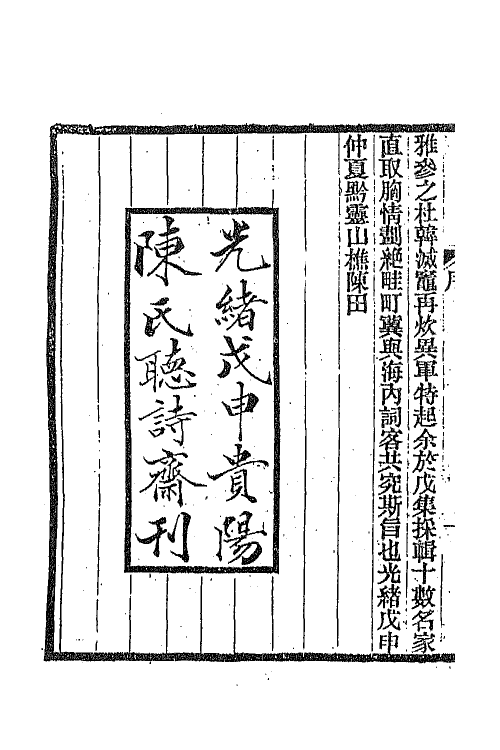 雅參之杜韓滅竈再炊異軍特起余於戊集採輯十數名家
直取胸情劃絕畦町冀與海內詞客共究斯旨也光緒戊申
仲夏黔靈山樵陳田
光緒戊申貴陽
陳氏聽詩齋刊